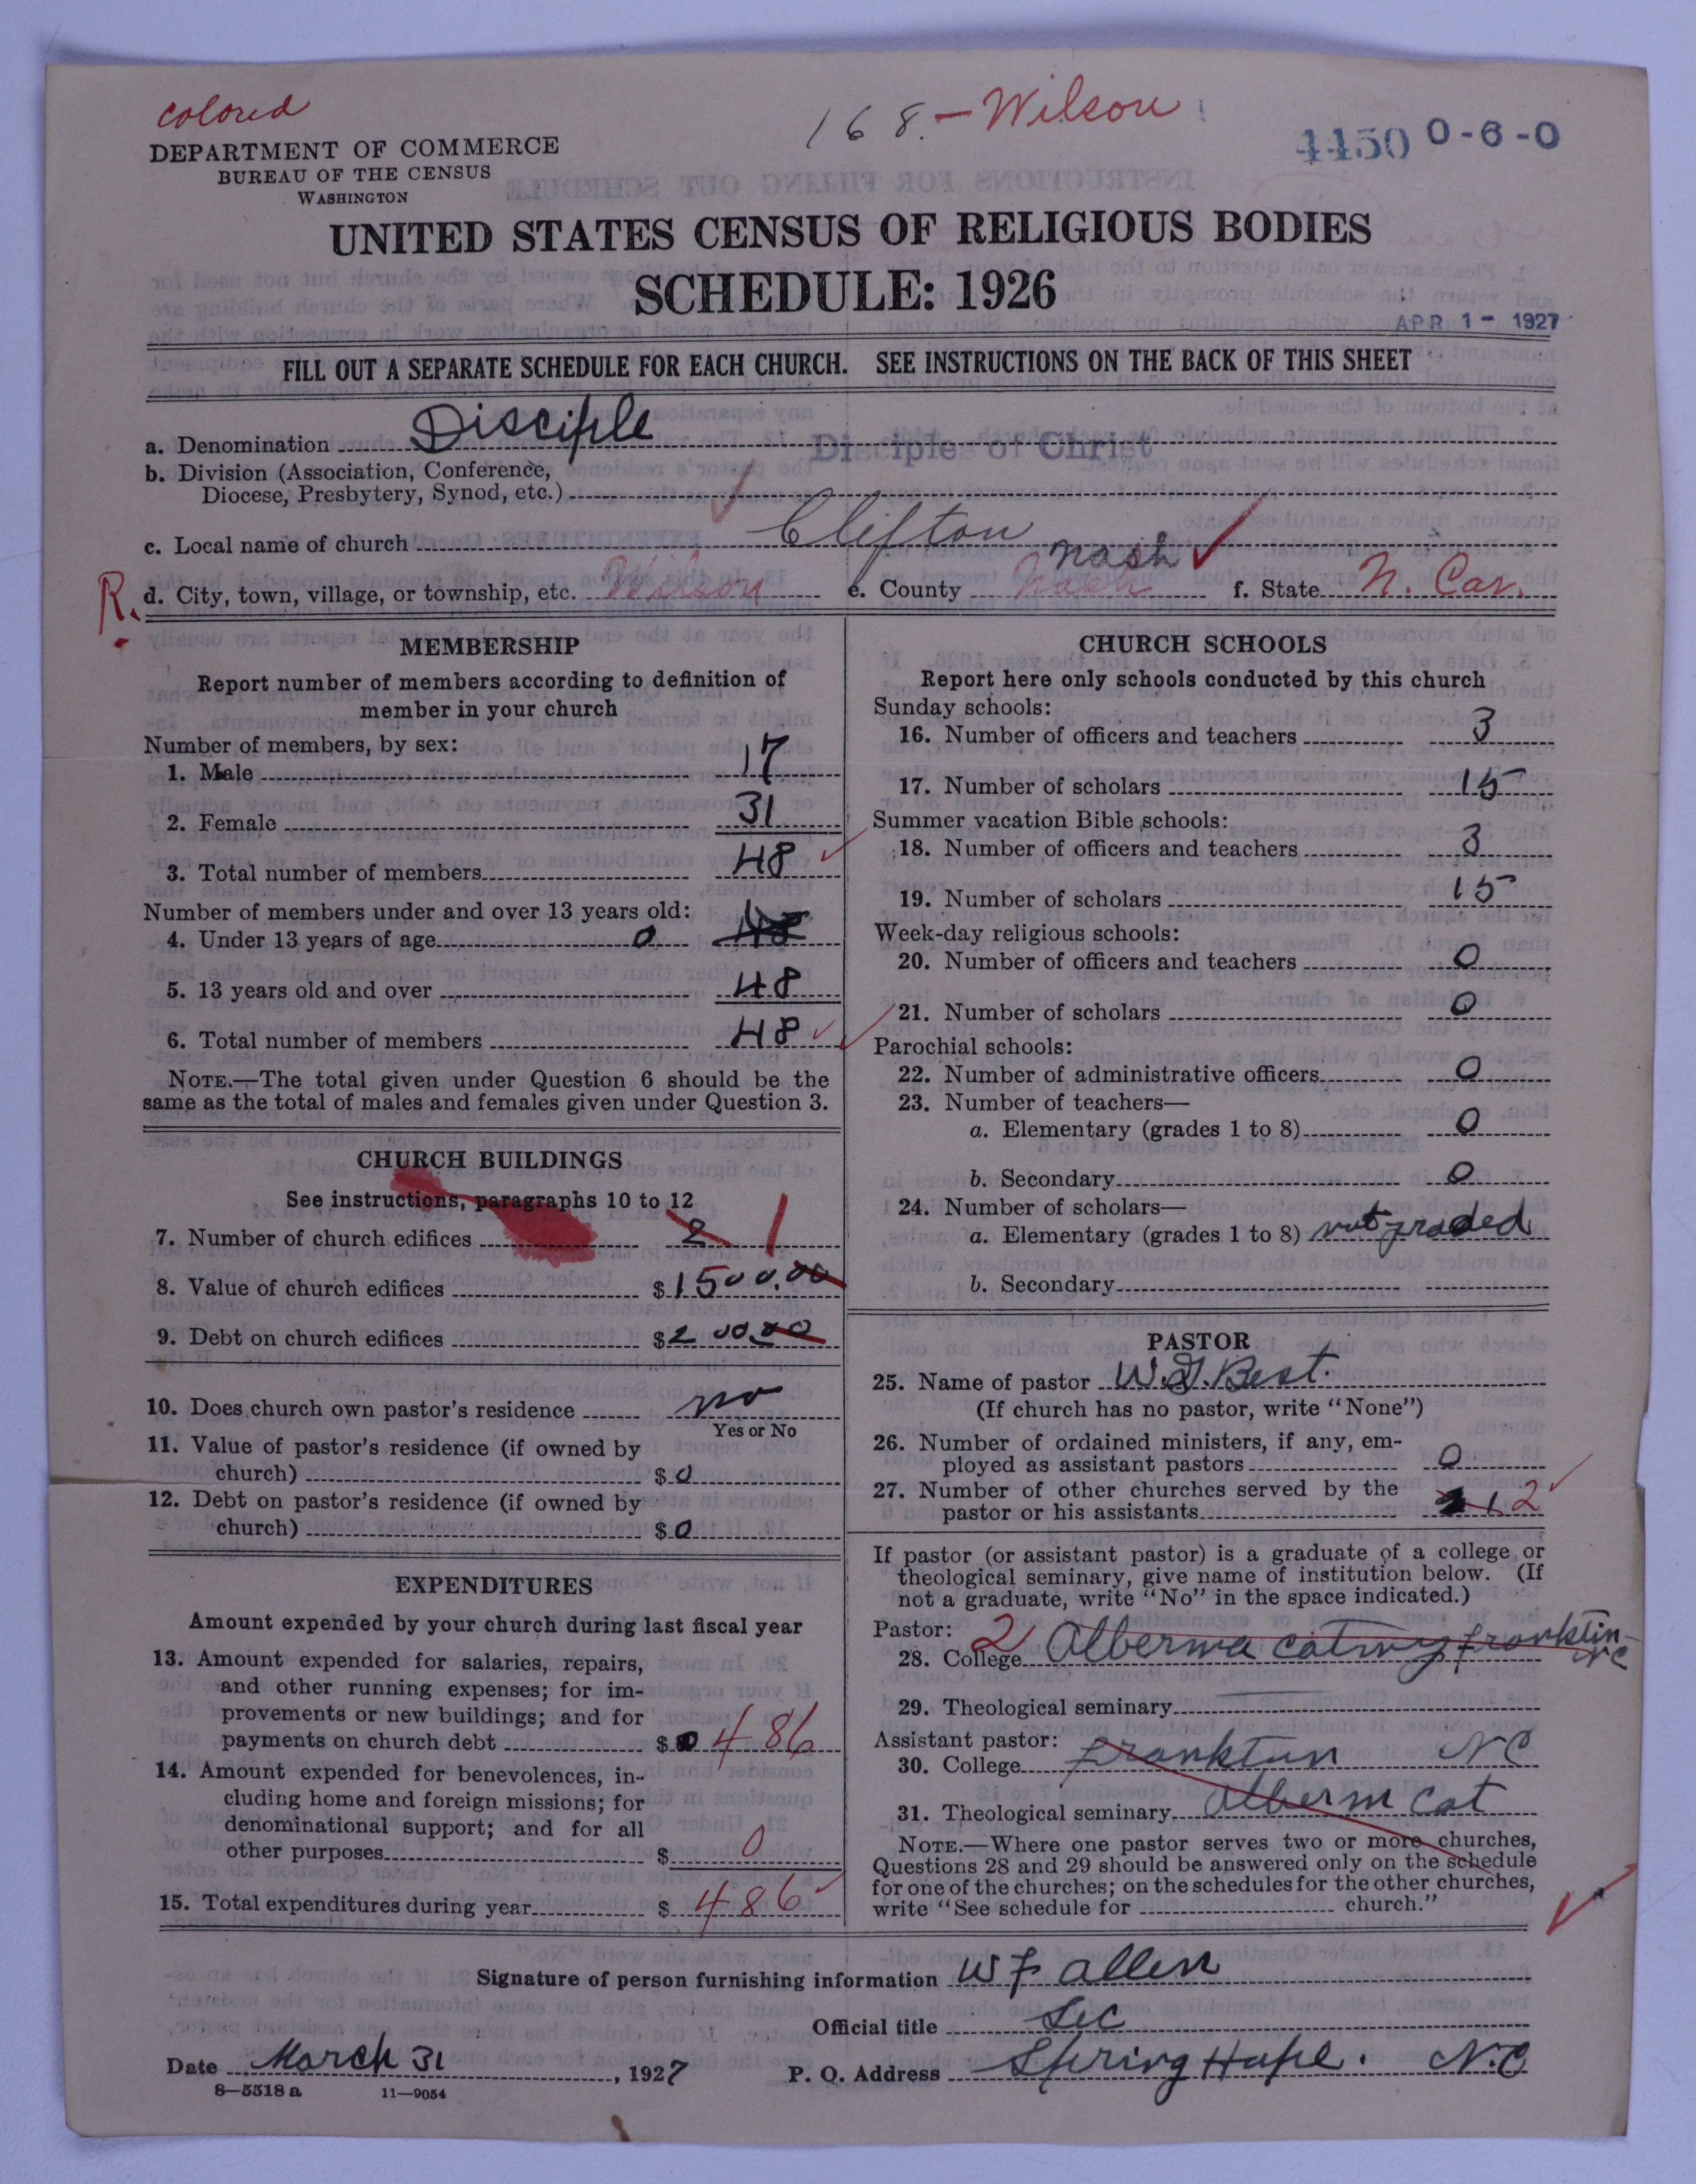 colored
168.-Wilson
4450 0-6-0
DEPARTMENT OF COMMERCE
BUREAU OF THE CENSUS
WASHINGTON
UNITED STATES CENSUS OF RELIGIOUS BODIES
SCHEDULE: 1926
APR 1 - 1927
FILL OUT A SEPARATE SCHEDULE FOR EACH CHURCH. SEE INSTRUCTIONS ON THE BACK OF THIS SHEET
a. Denomination Disciple Disciple of Christ
b. Division (Association, Conference,
Diocese, Presbytery, Synod, etc.)
c. Local name of church Clifton
Nash
R. d. City, town, village, or township, etc. Wilson e. County Nash f. State N. Car.
MEMBERSHIP
Report number of members according to definition of
member in your church
Number of members, by sex:
1. Male 17
2. Female 31
3. Total number of members 48
Number of members under and over 13 years old:
4. Under 13 years of age 0 48
5. 13 years old and over 48
6. Total number of members 48
NOTE.—The total given under Question 6 should be the
same as the total of males and females given under Question 3.
CHURCH BUILDINGS
See instructions, paragraphs 10 to 12
7. Number of church edifices 2 1
8. Value of church edifices $1500.00
9. Debt on church edifices $200.00
10. Does church own pastor's residence no
Yes or No
11. Value of pastor's residence (if owned by
church) $0
12. Debt on pastor's residence (if owned by
church) $0
EXPENDITURES
Amount expended by your church during last fiscal year
13. Amount expended for salaries, repairs,
and other running expenses; for im-
provements or new buildings; and for
payments on church debt $ 486
14. Amount expended for benevolences, in-
cluding home and foreign missions; for
denominational support; and for all
other purposes $ 0
15. Total expenditures during year $ 486
CHURCH SCHOOLS
Report here only schools conducted by this church
Sunday schools:
16. Number of officers and teachers 3
17. Number of scholars 15
Summer vacation Bible schools:
18. Number of officers and teachers 3
19. Number of scholars 15
Week-day religious schools:
20. Number of officers and teachers 0
21. Number of scholars 0
Parochial schools:
22. Number of administrative officers 0
23. Number of teachers—
a. Elementary (grades 1 to 8) 0
b. Secondary 0
24. Number of scholars—
a. Elementary (grades 1 to 8) not graded
b. Secondary
PASTOR
25. Name of pastor W.G. Best.
(If church has no pastor, write "None")
26. Number of ordained ministers, if any, em-
ployed as assistant pastors 0
27. Number of other churches served by the
pastor or his assistants 1 2
If pastor (or assistant pastor) is a graduate of a college or
theological seminary, give name of institution below. (If
not a graduate, write "No" in the space indicated.)
Pastor:
28. College 2 franklin NC
29. Theological seminary
Assistant pastor:
30. College franktun NC
31. Theological seminary Alberm Cat
NOTE.—Where one pastor serves two or more churches,
Questions 28 and 29 should be answered only on the schedule
for one of the churches; on the schedules for the other churches,
write "See schedule for church."
Signature of person furnishing information W F Allen
Official title Sec
Date March 31, 1927 P. O. Address Spring Hope. N.C
8—5518 a 11—9054